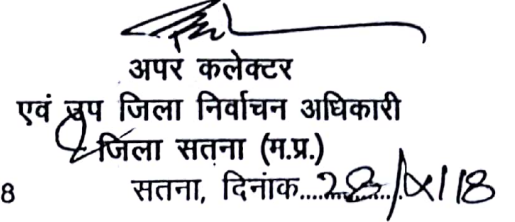 अपर कलेक्टर
एवं उप जिला निर्वाचन अधिकारी
जिला सतना (म.प्र.)
8 सतना, दिनांक....28/